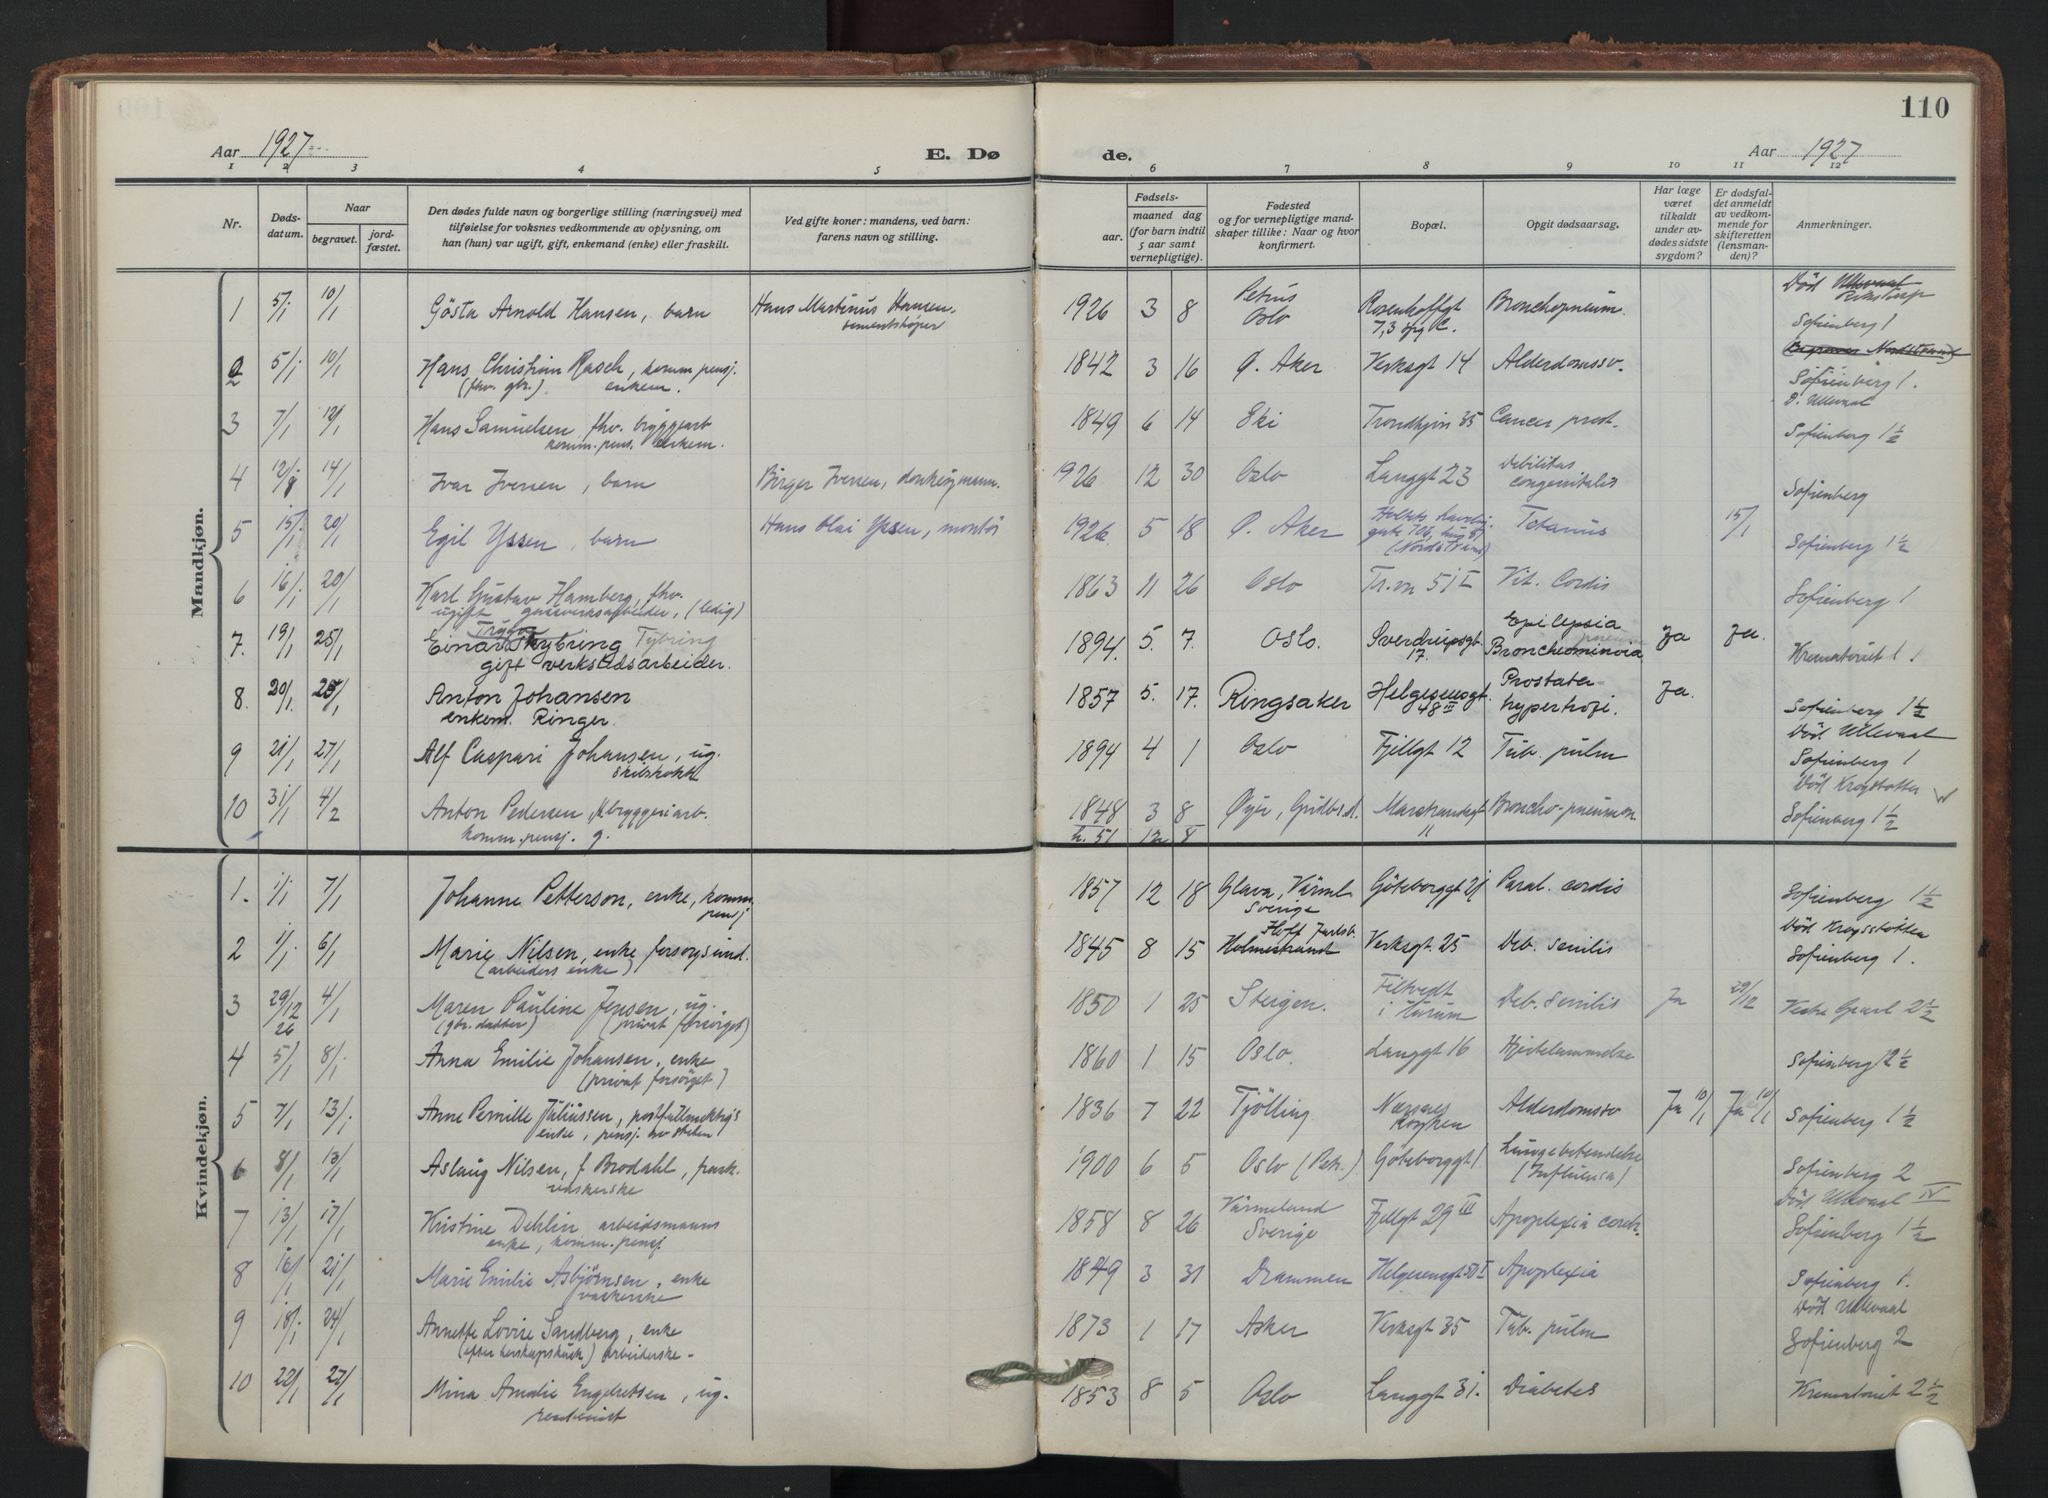 110
Aar 1927
E. Dø
de.
Aar 1927
1 2 3 4 5 6 7 8 9 10 11 12
Nr.
Døds-
datum.
Naar
begravet.
jord-
fæstet.
Den dødes fulde navn og borgerlige stilling (næringsvei) med
tilføielse for voksnes vedkommende av oplysning, om
han (hun) var ugift, gift, enkemand (enke) eller fraskilt.
Ved gifte koner: mandens, ved barn:
farens navn og stilling.
Fødsels-
aar.
maaned dag
(for barn indtil
5 aar samt
vernepligtige).
Fødested
og for vernepligtige mand-
skaper tillike: Naar og hvor
konfirmert.
Bopæl.
Opgit dødsaarsag.
Har læge
været
tilkaldt
under av-
dødes sidste
sygdom?
Er dødsfal-
det anmeldt
av vedkom-
mende for
skifteretten
(lensman-
den)?
Anmerkninger.
Mandkjøn.
Død Ullevaal
1 5/1 10/1 Gösta Arnold Hansen, barn Hans Martinus Hansen, 1926 3 8 Petrus Oslo Rosenhoffgt 7,3 opg C. Bronchopneum. Sofienberg 1
2 5/1 10/1 Hans Christian Rasch, komm. pensj. 1842 3 16 Ø. Aker Verksgt 14 Alderdomssv. Sofienberg 1.
(fhv. gbr.) enkem.
D. Ullevaal
3 7/1 12/1 Hans Samuelsen, fhv. bryggarb 1849 6 14 Ski Trondhjvn 35 Cancer prost. Sofienberg 1½
komm. pens. enkem.
4 12/1 14/1 Ivar Iversen, barn Birger Iversen, 1926 12 30 Oslo Langgt 23 Debilitas congenitalis Sofienberg
5 15/1 20/1 Egil Yssen, barn Hans Olai Yssen, montør 1926 5 18 Ø. Aker (Nordstrand) Tetanus 15/1 Sofienberg 1½
6 16/1 20/1 Karl Gustav Hamberg, fhv. 1863 11 26 Oslo Tr. vn 51 I Vit. Cordis Sofienberg 1
ugift gassverksarbeider, (ledig)
Trygve
7. 19/1 25/1 Einar Thybring Tybring 1894. 5. 7. Oslo. Sverdrupsgt. 17. Epilepsia Ja Ja. Krematoriet 1.
gift verkstedsarbeider.
8. 20/1 25/1 Anton Johansen 1857 5. 17. Ringsaker Helgesensgt. 48 III Prostata- hypertrofi. Ja. Sofienberg 1½
enkem. Ringer.
Død Ullevaal
9 21/1 27/1 Alf Caspari Johansen, ug. 1894 4 1 Oslo Fjellgt 12 Tub. pulm Sofienberg 1
skibskokk
Død Krogstøtten
10 31/1 4/2 Anton Pedersen, bryggeriarb. 1848 3 8 Øyer, Gudbrd. Marstrandsgt 11 Broncho-pneumon Sofienberg 1½
komm. pensj. g. h. 51 12 8
Kvindekjøn.
1. 1/1 7/1 Johanne Petterson, enke, komm. pensj 1857 12 18 Glava, Värml Sverige Göteborggt 21 Paral. cordis Sofienberg 1½
Død Krogstøtten
2 1/1 6/1 Marie Nilsen, enke, forsorgsund. 1845 8 15 Hoff Jarlsb. Holmestrand Verksgt. 25 Deb. senilis Sofienberg 1.
(arbeiders enke)
3 29/12 26 4/1 Maren Pauline Jensen, ug. 1850 1 25 Steigen. Filtvedt i Hurum Deb. Senilis Ja 29/12 Vestre Gravl 2½
(gbr. datter) (privat forsørget)
4 5/1 8/1 Anna Emilie Johansen, enke 1860 1 15 Oslo. Langgt 16 Hjertelammelse Sofienberg 2½
(privat forsørget)
5 7/1 13/1 Anne Pernille Juliussen, postfullmektigs 1836 7 22 Tjölling Næsnes Røyken Alderdomssv Ja 10/1 Ja 10/1 Sofienberg 1½
enke, pensj. av staten
6 8/1 13/1 Aslaug Nilsen, f. Brodahl, frask. 1900 6 5 Oslo (Petr.) Göteborggt 1 Lungebetendelse (Influensa) Sofienberg 2
vaskerske
Død Ullevaal IV
7 13/1 17/1 Kristine Dehlin, arbeidsmanns 1858 8 26 Värmeland Sverige Fjellgt 29 III Apoplexia cereb. Sofienberg 1½
enke, komm. pensj.
8 16/1 21/1 Marie Emilie Asbjörnsen, enke 1849 3 31 Drammen Helgesensgt 50 I Apoplexia Sofienberg 1.
vaskerske
Død Ullevaal
9 18/1 24/1 Annette Lovise Sandberg, enke 1873 1 17 Asker Verksgt 35 Tub. pulm Sofienberg 2
arbeiderske -
10 22/1 27/1 Mina Amalie Engebretsen, ug. 1853 8 5 Oslo Langgt 31. Diabetes Krematoriet 2½
rentenist